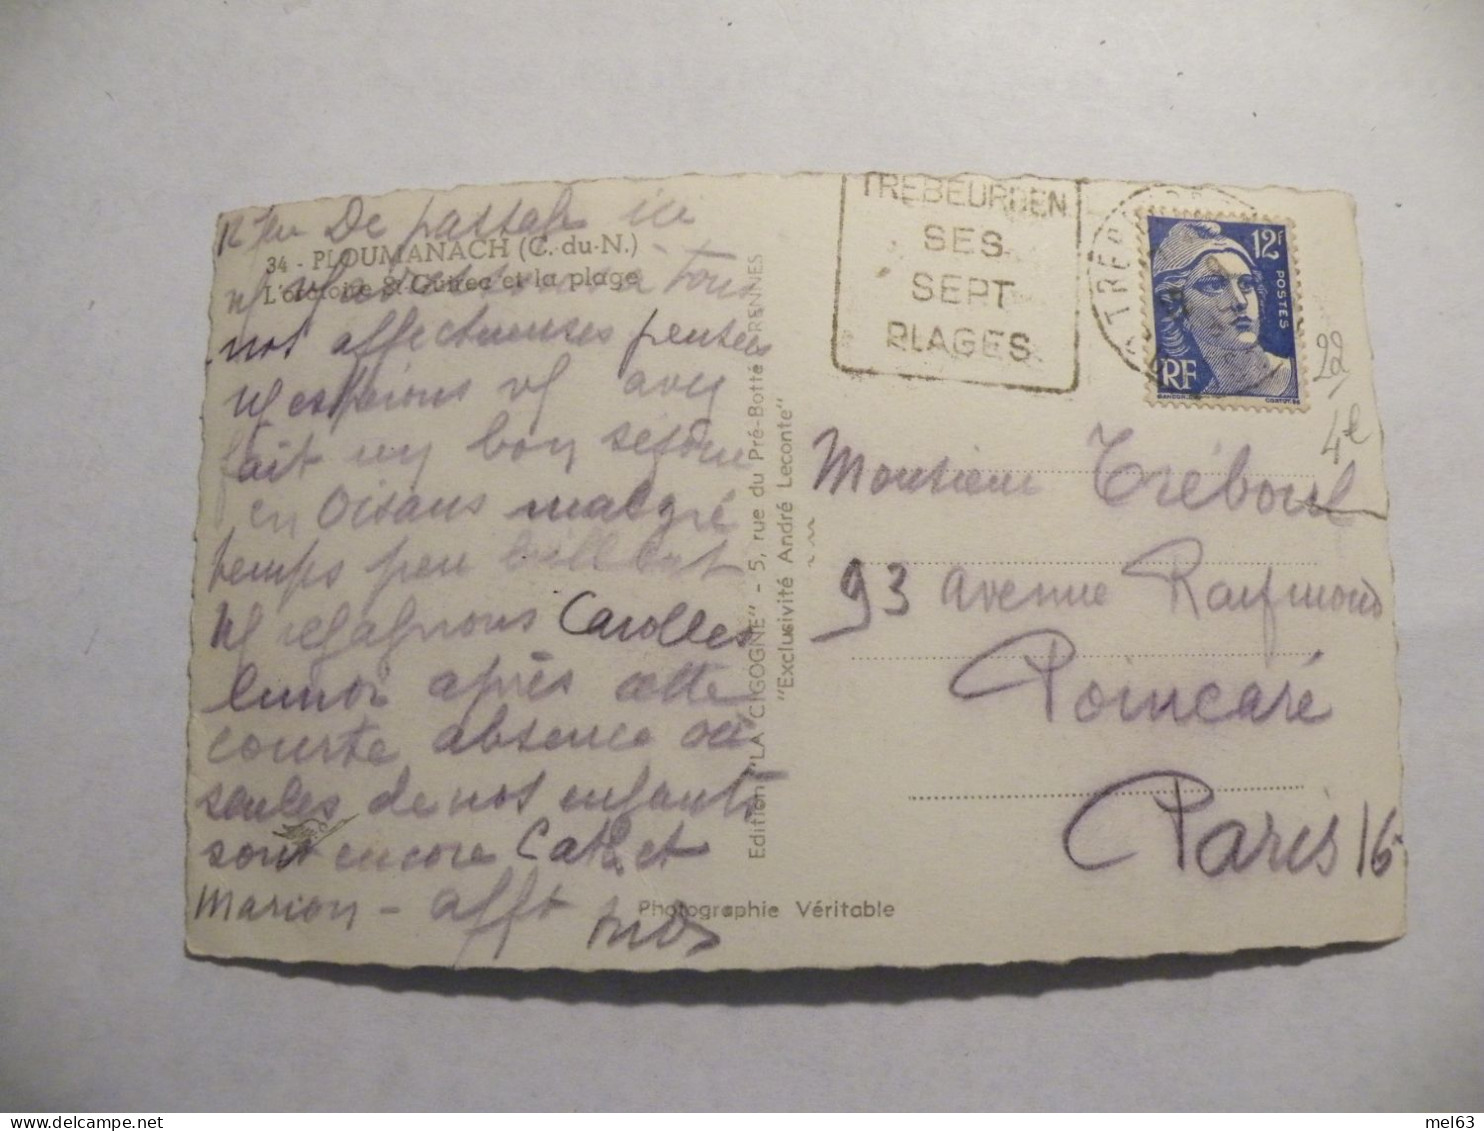 De passage ici
34 - PLOUMANACH (C.-du-N.)
L'oratoire St Guirec et la plage
à tous
nos affectueuses pensées
espérons avez
fait un bon séjour
en Oisans malgré
temps peu brillant
regagnons Carolles
lundi après cette
courte absence où
seules de nos enfants
sont encore Cath. et
Marion - afft
Edition "LA CIGOGNE" - 5, rue du Pré-Botté RENNES
"Exclusivité André Leconte"
Photographie Véritable
TREBEURDEN
SES
SEPT
PLAGES
12F
POSTES
RF
22
4€
Monsieur Tréboul
93 avenue Raymond
Poincaré
Paris 16
mel63